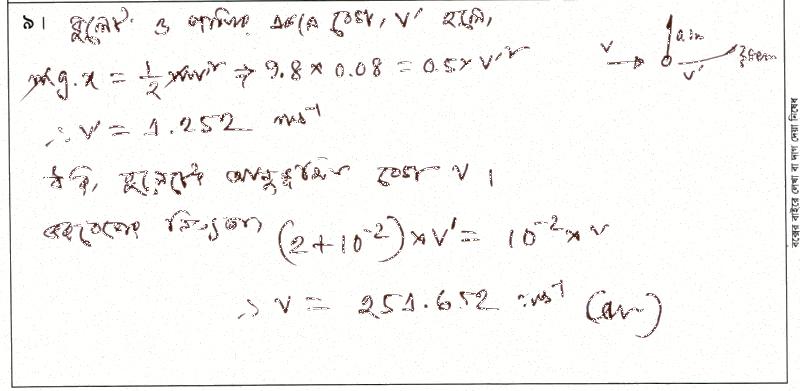 ৯। বুলেট ও পাখির একত্রে বেগ, v' হলে,
mg.x = 1/2 mv'² ⇒ 9.8 × 0.08 = 0.5 × v'²
∴ v' = 1.252 ms⁻¹
ধরি, বুলেটের আনুভূমিক বেগ v ।
ভরবেগের নিত্যতা (2+10⁻²) × v' = 10⁻² × v
∴ v = 251.652 ms⁻¹ (Ans)
v
v'
8cm
বক্সের বাইরে লেখা বা দাগ দেয়া নিষেধ